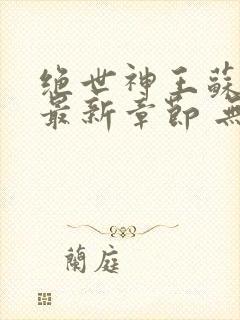 绝世神王蘇
最新章節 無
蘭庭